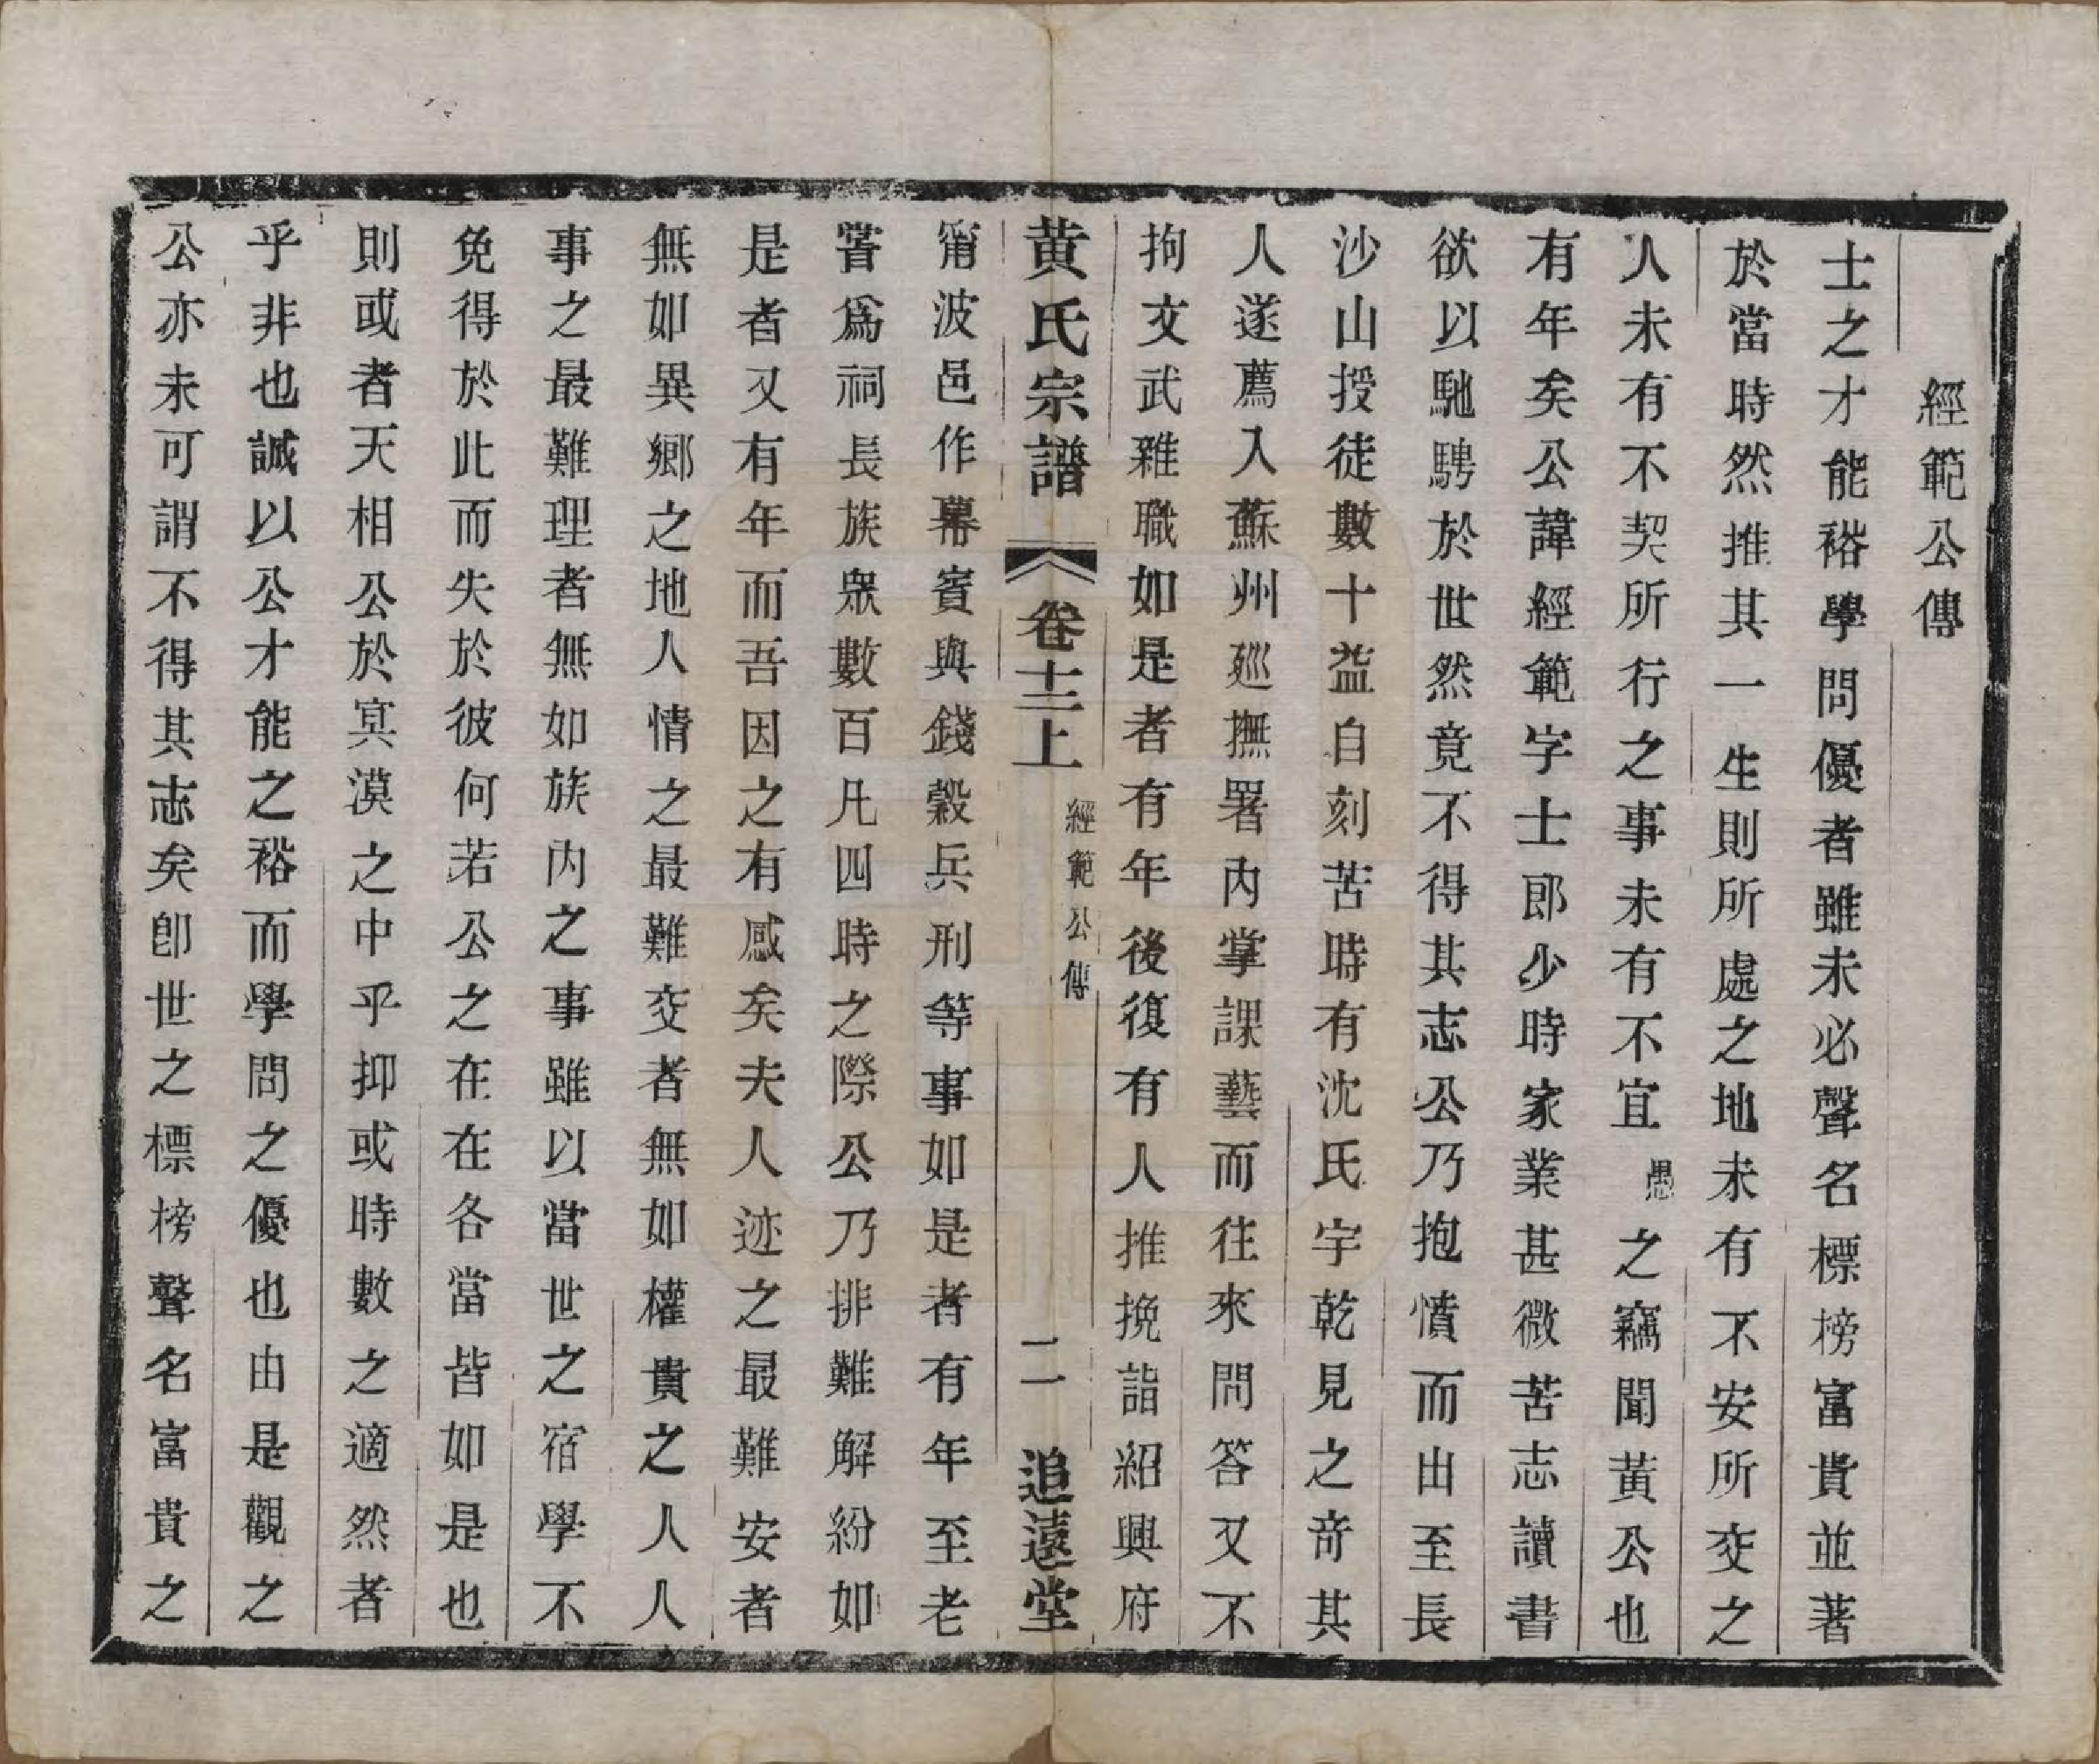 經範公傳
士之才能裕學問優者雖未必聲名標榜富貴並著
於當時然推其一生則所處之地未有不安所交之
人未有不契所行之事未有不宜愚之竊聞黃公也
有年矣公諱經範字士郎少時家業甚微苦志讀書
欲以馳騁於世然竟不得其志公乃抱憤而出至長
沙山授徒數十益自刻苦時有沈氏宇乾見之奇其
人遂薦入蘇州廵撫署內掌課藝而往來問答又不
拘文武雜職如是者有年後復有人推挽詣紹興府
黄氏宗譜 卷十二上 經範公傳 二 追遠堂
甯波邑作幕賓與錢穀兵刑等事如是者有年至老
嘗爲祠長族衆數百凡四時之際公乃排難解紛如
是者又有年而吾因之有感矣夫人迹之最難安者
無如異鄉之地人情之最難交者無如權貴之人人
事之最難理者無如族內之事雖以當世之宿學不
免得於此而失於彼何若公之在在各當皆如是也
則或者天相公於冥漠之中乎抑或時數之適然者
乎非也誠以公才能之裕而學問之優也由是觀之
公亦未可謂不得其志矣卽世之標榜聲名富貴之